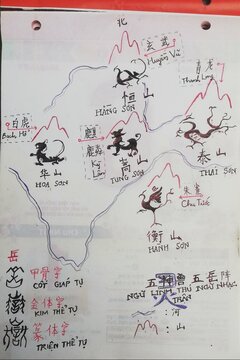 北
玄武
Huyền Vũ
恒 山
HẰNG SƠN
青龙
Thanh Long
白虎
Bạch Hổ
华 山
HOA SƠN
麒麟
Kỳ
Lân
嵩 山
TUNG SƠN
泰 山
THÁI SƠN
朱雀
Chu Tước
衡 山
HÀNH SƠN
岳
甲骨字
CỐT GIÁP TỰ
金体字
KIM THỂ TỰ
篆体字
TRIỆN THỂ TỰ
五 五岳阵
NGŨ LINH THÚ NGŨ NHẠC
TRẬN
: 河
: 山